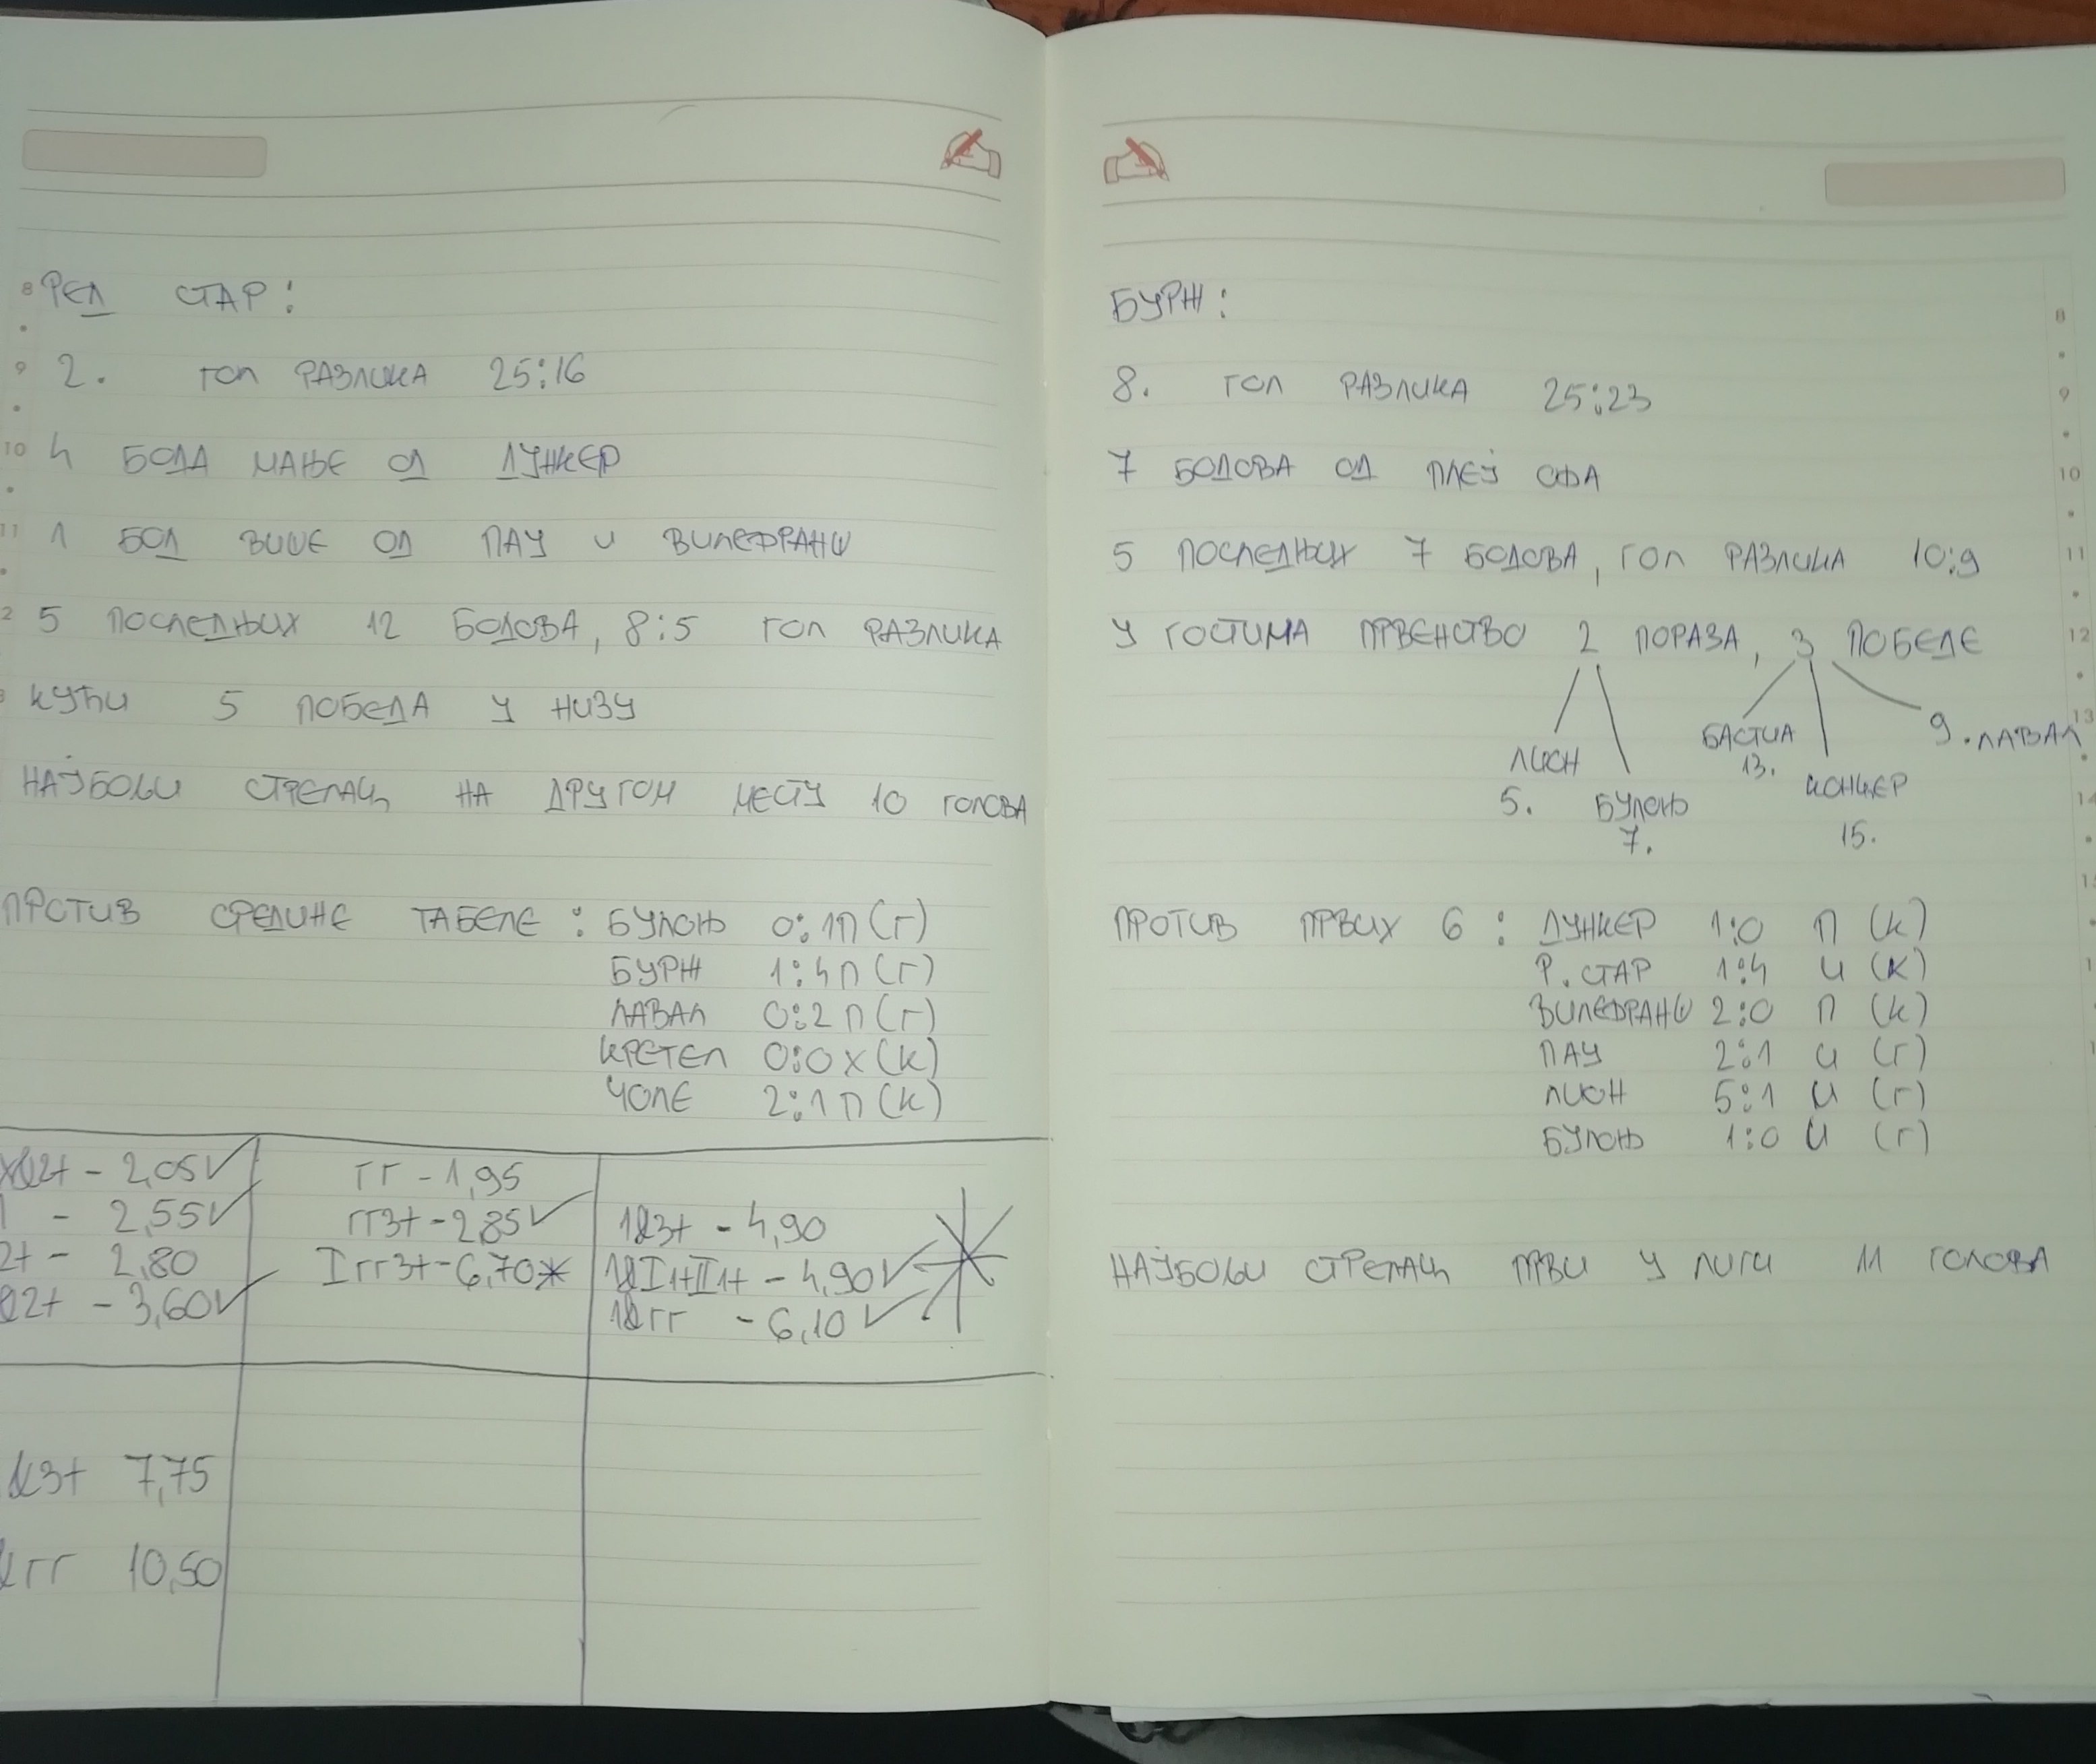 РЕД СТАР:
2. ГОЛ РАЗЛИКА 25:16
4 БОДА МАЊЕ ОД ДУНКЕР
1 БОД ВИШЕ ОД ПАУ И ВИЛЕФРАНШ
5 ПОСЛЕДЊИХ 12 БОДОВА, 8:5 ГОЛ РАЗЛИКА
КУЋИ 5 ПОБЕДА У НИЗУ
НАЈБОЉИ СТРЕЛАЦ НА ДРУГОМ МЕСТУ 10 ГОЛОВА
ПРОТИВ СРЕДИНЕ ТАБЕЛЕ: БУЛОЊ 0:1 П (Г)
БУРЖ 1:4 П (Г)
ЛАВАЛ 0:2 П (Г)
КРЕТЕЛ 0:0 X (К)
ЧОЛЕ 2:1 П (К)
2+ - 2,05 ✓
- 2,55 ✓
2+ - 2,80
2+ - 3,60 ✓
ГГ - 1,95
ГГ3+ - 2,85 ✓
I ГГ3+ - 6,70 *
1&3+ - 4,90
1&I1+II1+ - 4,90 ✓
1&ГГ - 6,10 ✓
&3+ 7,75
&ГГ 10,50
БУРЖ:
8. ГОЛ РАЗЛИКА 25:23
7 БОДОВА ОД ПЛЕЈ ОФА
5 ПОСЛЕДЊИХ 7 БОДОВА, ГОЛ РАЗЛИКА 10:9
У ГОСТИМА ПРВЕНСТВО 2 ПОРАЗА, 3 ПОБЕДЕ
ЛИОН 5.
БУЛОЊ 7.
БАСТИА 13.
15.
9. ЛАВАЛ
ПРОТИВ ПРВИХ 6: ДУНКЕР 1:0 П (К)
Р. СТАР 1:4 И (К)
ВИЛЕФРАНШ 2:0 П (К)
ПАУ 2:1 И (Г)
ЛИОН 5:1 И (Г)
БУЛОЊ 1:0 И (Г)
НАЈБОЉИ СТРЕЛАЦ ПРВИ У ЛИГИ 11 ГОЛОВА